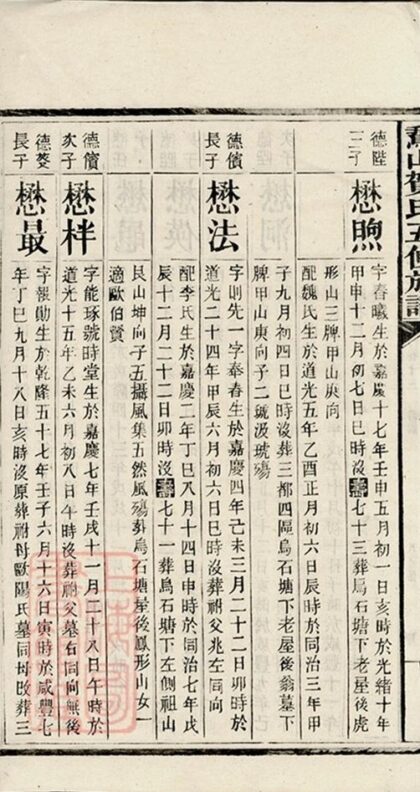 賀氏五修族譜
德陞
三子
懋煦
字春曦生於嘉慶十七年壬申五月初一日亥時於光緒十年
甲申十二月初七日巳時沒壽七十三葬烏石塘下老屋後虎
形山三牌甲山庚向
配魏氏生於道光五年乙酉正月初六日辰時於同治三年甲
子九月初四日巳時沒葬三都四區烏石塘下老屋後翁墓下
牌甲山庚向子二琥汲琥殤
德儐
長子
懋法
字則先一字奉春生於嘉慶四年己未三月二十二日卯時於
道光二十四年甲辰六月初六日巳時沒葬祔父兆左同向
配李氏生於嘉慶二年丁巳八月十四日申時於同治七年戊
辰十二月二十二日卯時沒壽七十一葬烏石塘下左側祖山
艮山坤向子五攝風集五然風殤葬烏石塘屋後鳳形山女一
適歐伯賢
德儐
次子
懋柈
字能琢號時堂生於嘉慶七年壬戌十一月二十八日午時於
道光十五年乙亥六月初八日午時沒葬祔父墓右同向無後
德蔆
長子
懋最
字報勛生於乾隆五十七年壬子六月十六日寅時於咸豐七
年丁巳九月十八日亥時沒原葬祔母歐陽氏墓同母改葬三